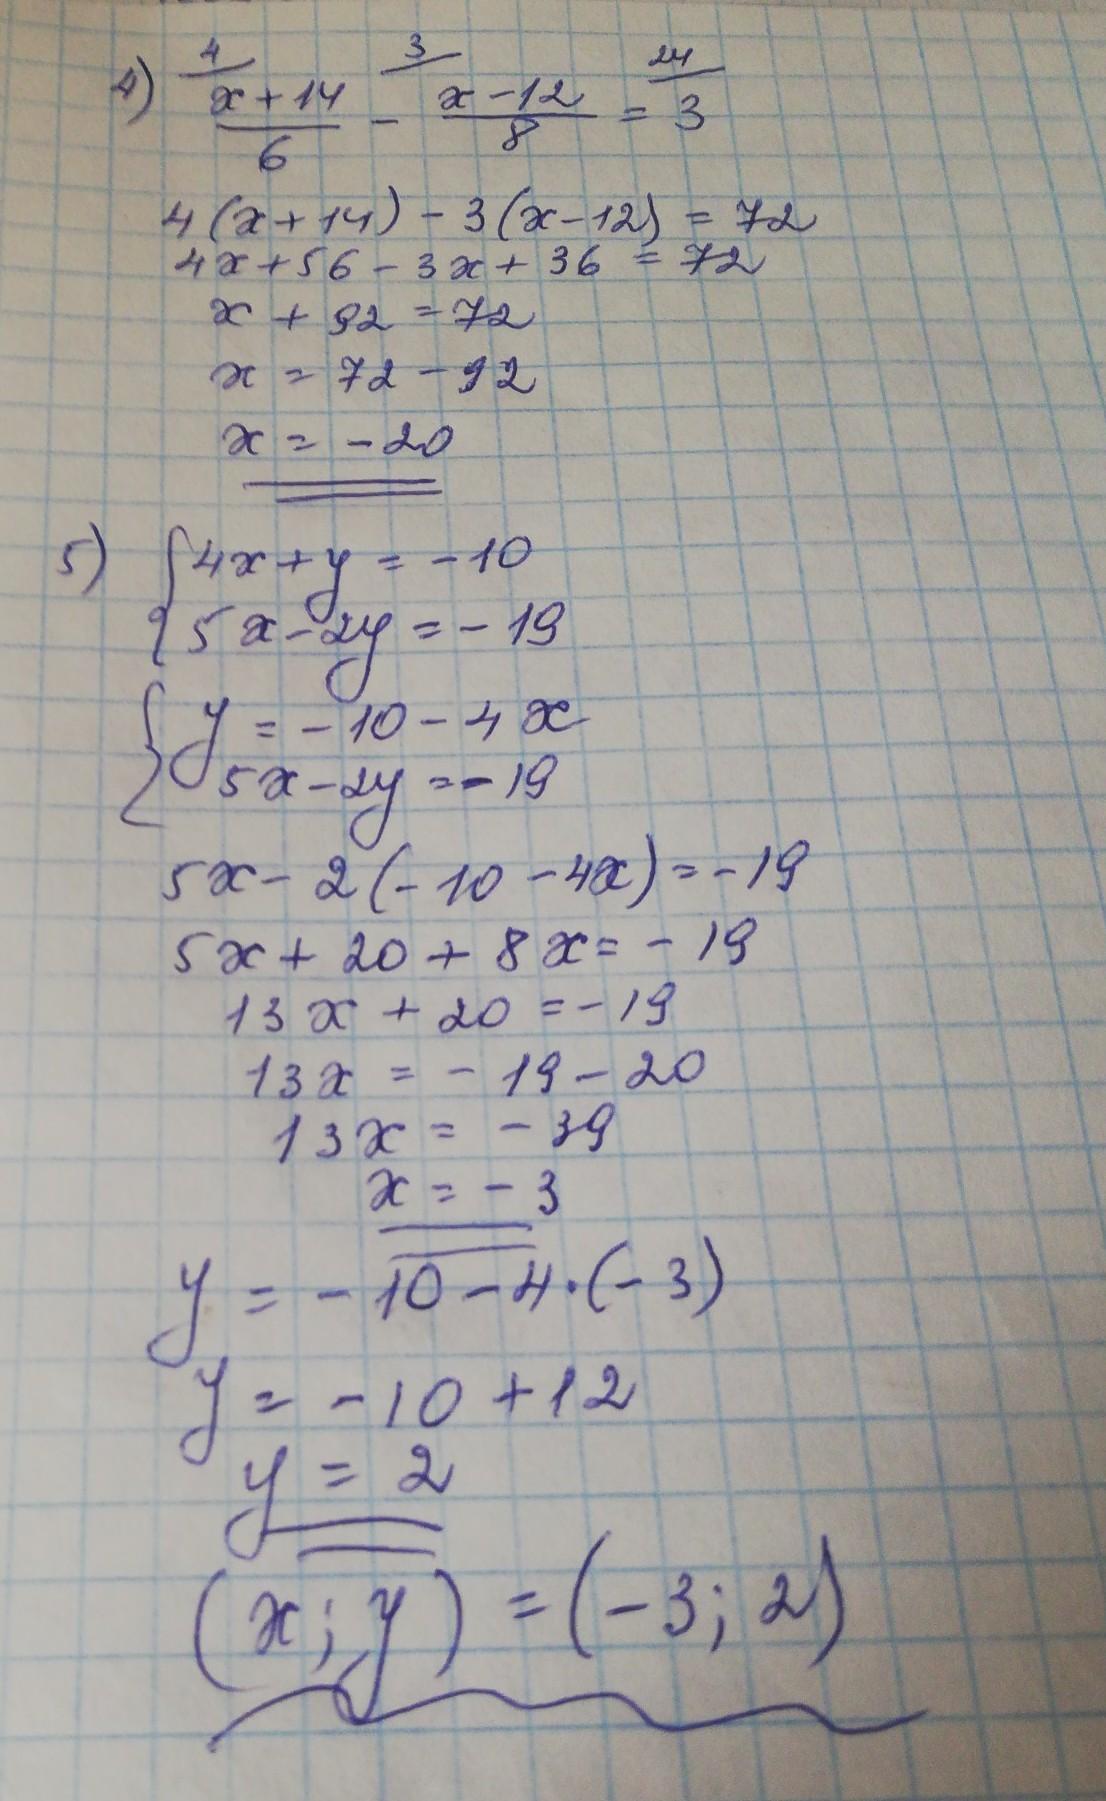 4) (x+14)/6 - (x-12)/8 = 3
4 3 24
4(x+14) - 3(x-12) = 72
4x+56-3x+36 = 72
x + 92 = 72
x = 72-92
x = -20
5) { 4x+y = -10
5x-2y = -19
{ y = -10-4x
5x-2y = -19
5x-2(-10-4x) = -19
5x+20+8x = -19
13x+20 = -19
13x = -19-20
13x = -39
x = -3
y = -10-4·(-3)
y = -10+12
y = 2
(x; y) = (-3; 2)